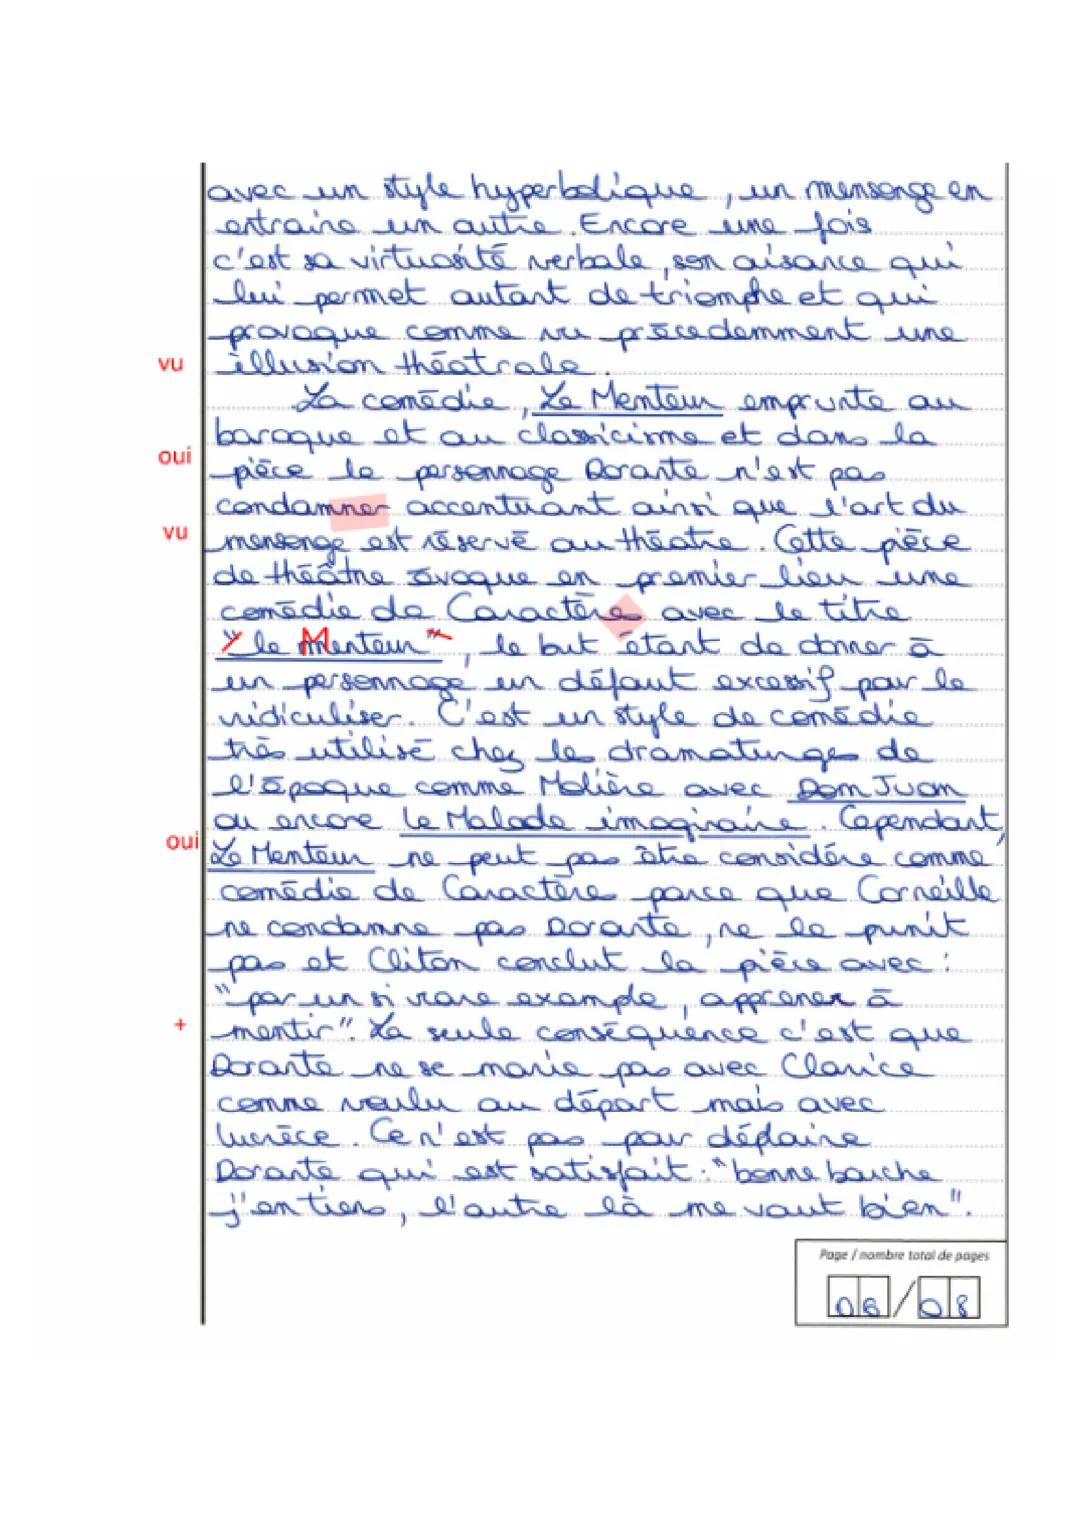 avec un style hyperbolique, un mensonge en
entraine un autre. Encore une fois
c'est sa virtuosité verbale, son aisance qui
lui permet autant de triomphe et qui
provoque comme vu précedemment une
vu illusion théatrale.
La comédie, Le Menteur emprunte au
baroque et au classicisme et dans la
oui pièce le personnage Dorante n'est pas
condamner accentuant ainsi que l'art du
vu mensonge est réservé au théatre. Cette pièce
de théâtre évoque en premier lieu une
comédie de Caractères avec le titre
"le Menteur", le but étant de donner à
un personnage un défaut excessif pour le
ridiculiser. C'est un style de comédie
très utilisé chez les dramaturges de
l'époque comme Molière avec Dom Juan
ou encore le Malade imaginaire. Cependant,
oui Le Menteur ne peut pas être considéré comme
comédie de Caractères parce que Corneille
ne condamne pas Dorante, ne le punit
pas et Cliton conclut la pièce avec :
"par un si rare exemple, apprenez à
+ mentir". La seule conséquence c'est que
Dorante ne se marie pas avec Clarice
comme voulu au départ mais avec
lucrèce. Ce n'est pas pour déplaire
Dorante qui est satisfait : "bonne bouche
j'en tiens, l'autre là me vaut bien".
Page / nombre total de pages
06/08